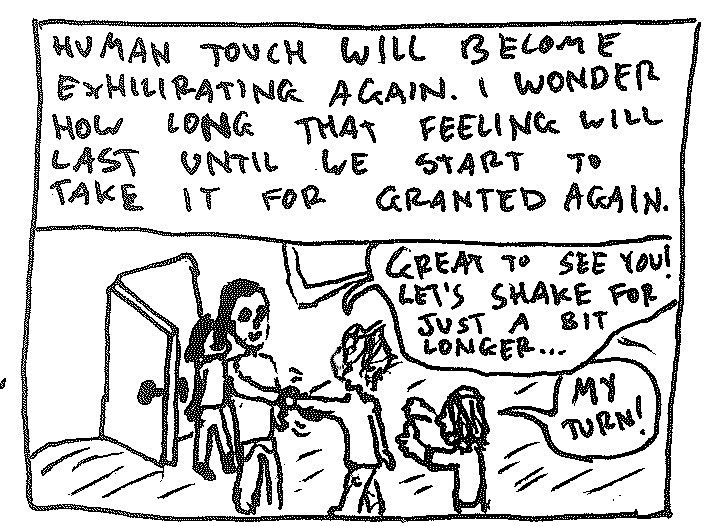 HUMAN TOUCH WILL BECOME
EXHILIRATING AGAIN. I WONDER
HOW LONG THAT FEELING WILL
LAST UNTIL WE START TO
TAKE IT FOR GRANTED AGAIN.
GREAT TO SEE YOU!
LET'S SHAKE FOR
JUST A BIT
LONGER...
MY
TURN!